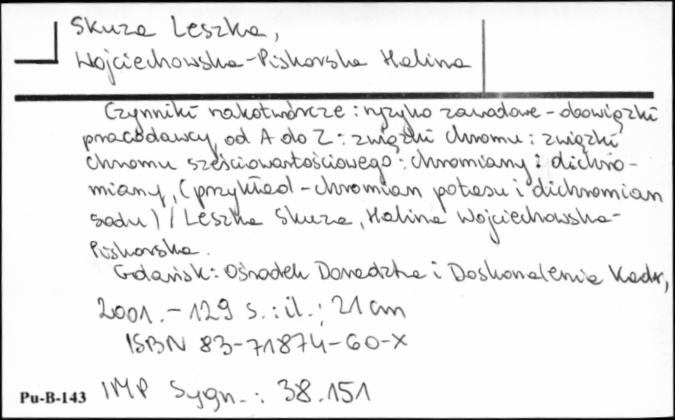 Skuza Leszka,
Wojciechowska-Piskorska Halina
Czynniki rakotwórcze : ryzyko zawodowe - obowiązki
pracodawcy od A do Z : związki chromu : związki
chromu sześciowartościowego : chromiany i dichro-
miany, (przykład - chromian potasu i dichromian
sodu) / Leszka Skuza, Halina Wojciechowska-
Piskorska.
Gdańsk : Ośrodek Doradztwa i Doskonalenia Kadr,
2001. - 129 s. : il. ; 21 cm
ISBN 83-71874-60-X
Pu-B-143 IMP Sygn. : 38.151